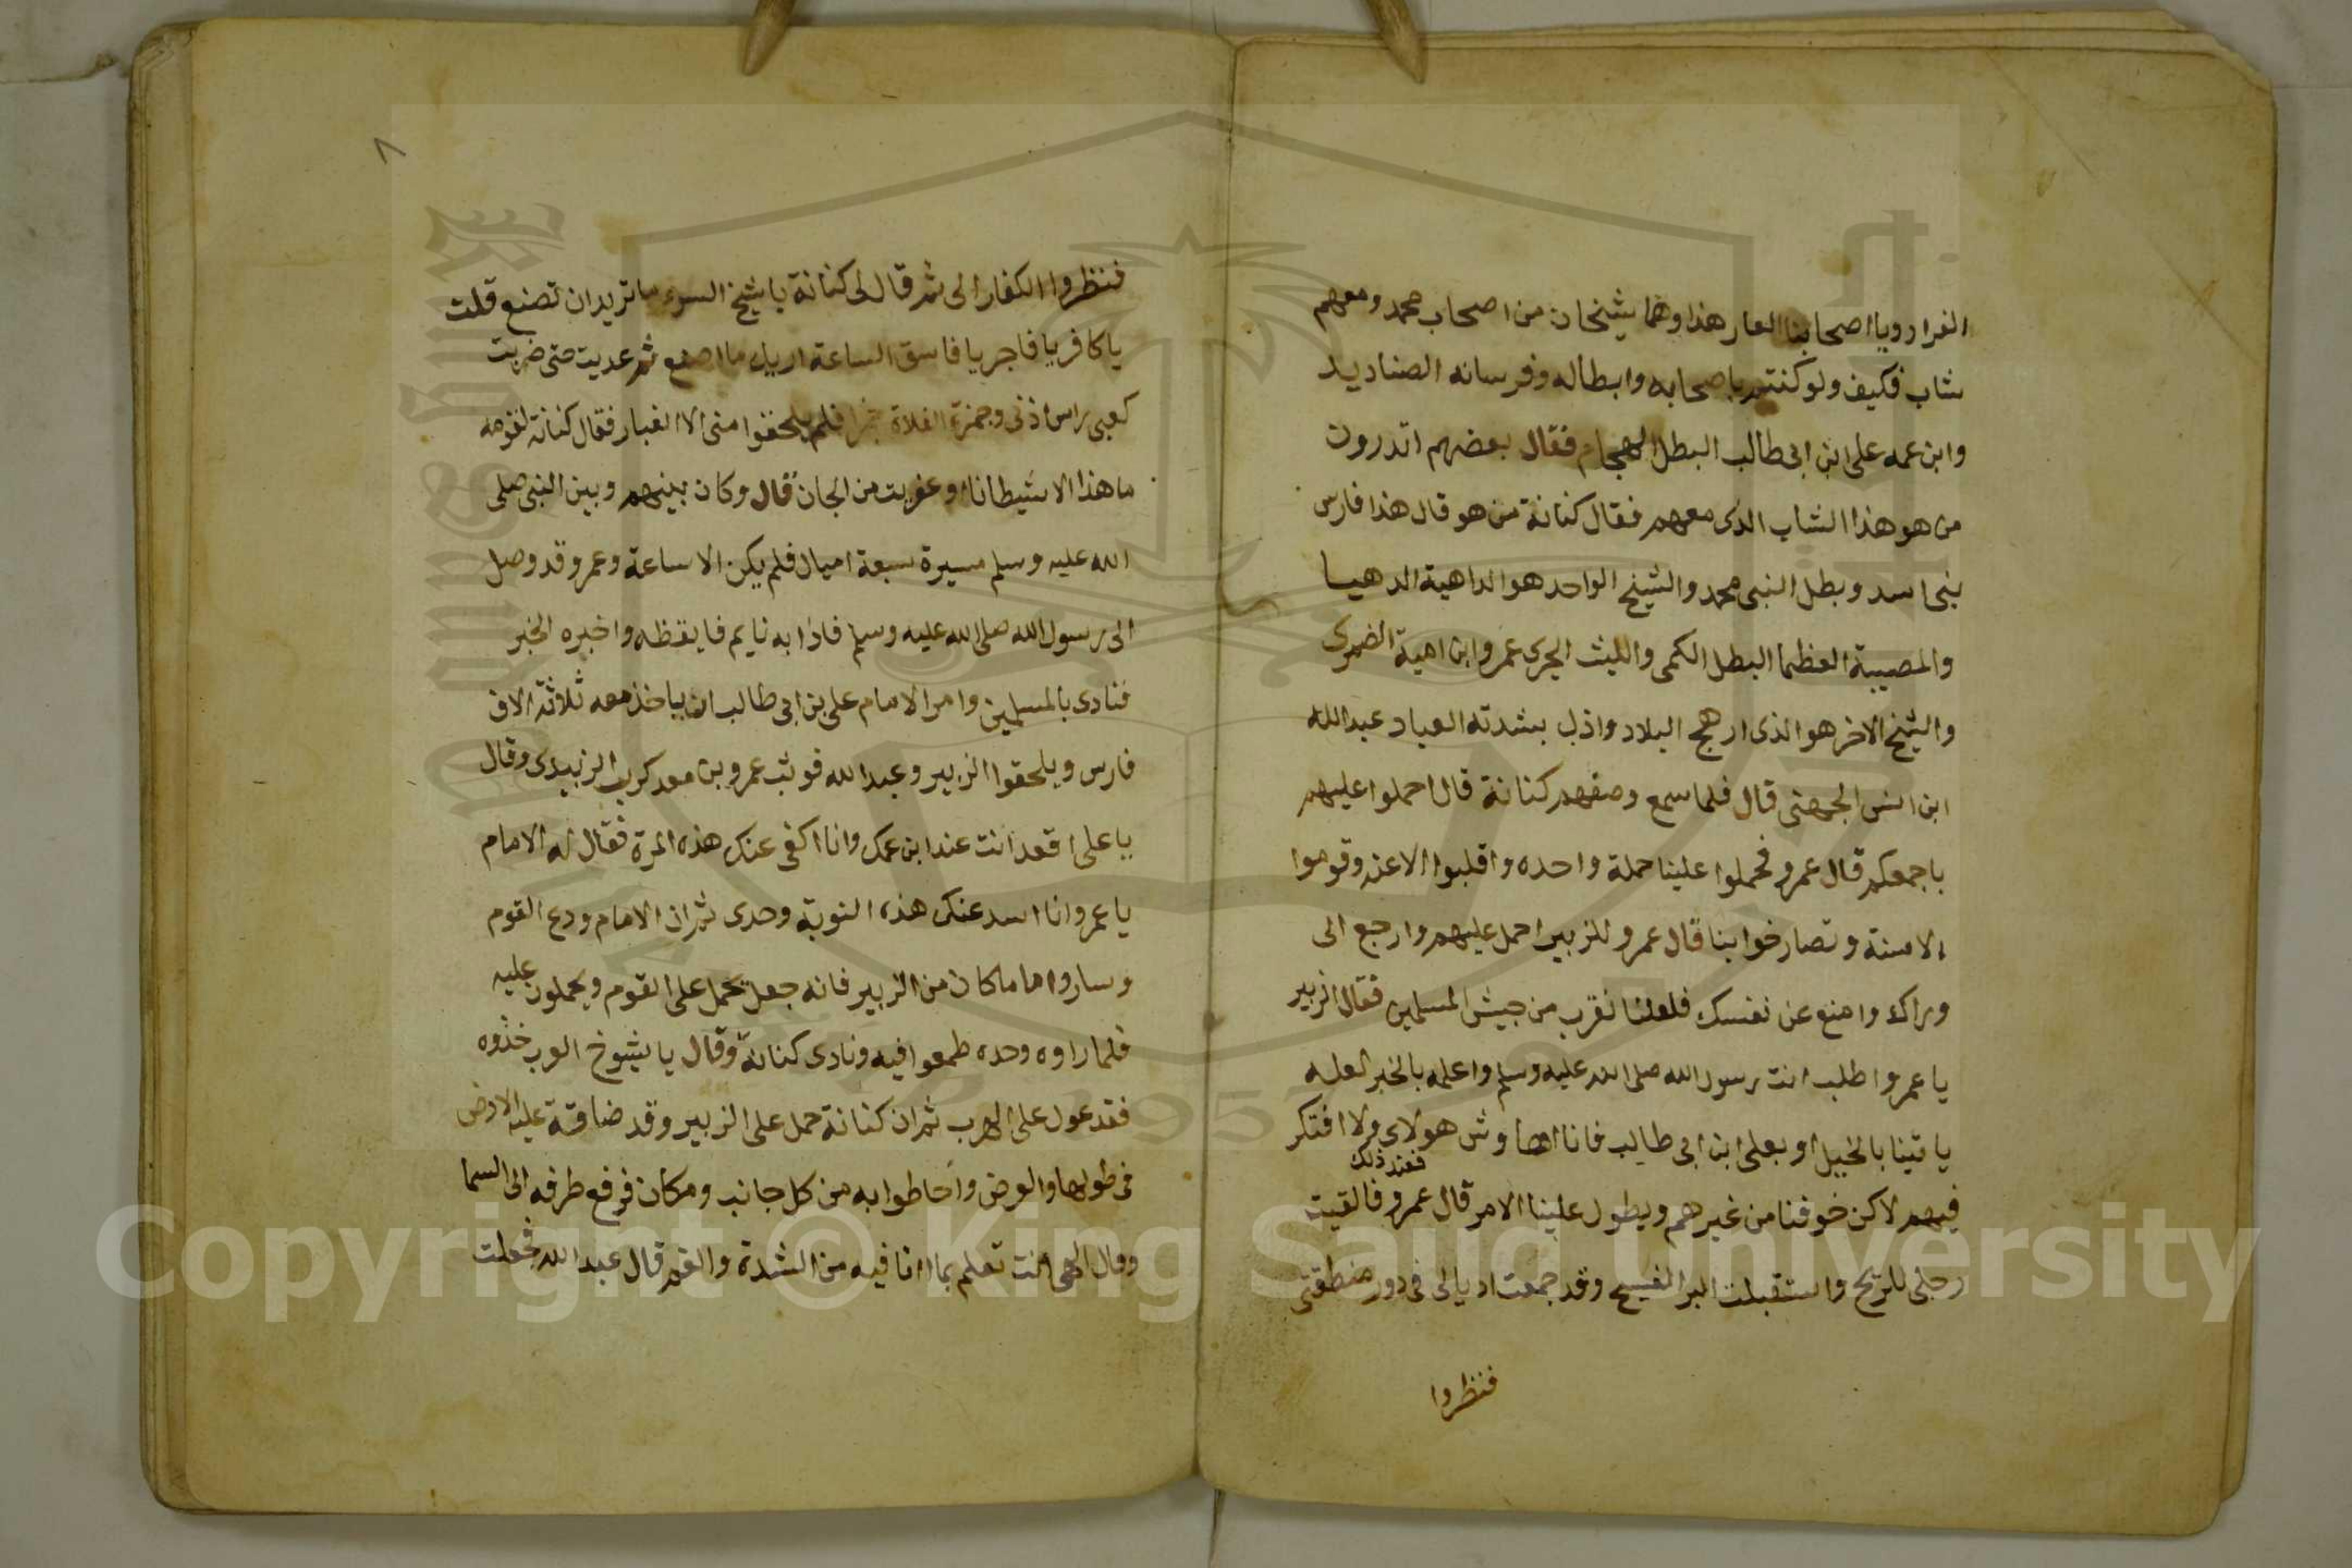 الفرار ويا اصحابنا العار هذا وهما شيخان من اصحاب محمد ومعهم
شاب فكيف ولو كنتم باصحابه وابطاله وفرسانه الصناديد
وابن عمه على ابن ابى طالب البطل الهجام فقال بعضهم اتدرون
من هو هذا الشاب الذى معهم فقال كنانة من هو قال هذا فارس
بنى اسد وبطل النبى محمد والشيخ الواحد هو الداهية الدهيا
والمصيبة العظما البطل الكمى والليث الجرى عمرو ابن امية الضمرى
والشيخ الاخر هو الذى ارهج البلاد واذل بشدته العباد عبد الله
ابن انس الجهنى قال فلما سمع وصفهم كنانة قال احملوا عليهم
باجمعكم قال عمرو فحملوا علينا حملة واحده واقلبوا الاعنه وقوموا
الاسنة وتصارخوا بنا قال عمرو للزبير احمل عليهم وارجع الى
وراك وامنع عن نفسك فلعلنا نقرب من جيش المسلمين فقال الزبير
يا عمرو اطلب انت رسول الله صلى الله عليه وسلم واعلمه بالخبر لعله
ياتينا بالخيل او بعلى ابن ابى طالب فانا اهاوش هولاى ولا افتكر
فيهم لاكن خوفنا من غيرهم ويطول علينا الامر قال عمرو فعند ذلك فالقيت
رجلى للريح واستقبلت البر الفسيح وقد جمعت اديالى فى دور منطقتى
فنظروا
٨
فنظروا الكفار الى ثم قال لى كنانة يا شيخ السوء ما تريد ان تصنع قلت
يا كافر يا فاجر يا فاسق الساعة اريك ما اصنع ثم عديت حتى ضربت
كعبى راس اذنى وجمزة الفلاة جمزا فلم يلحقوا منى الا الغبار فقال كنانة لقومه
ما هذا الا شيطانا او عفريت من الجان قال وكان بينهم وبين النبى صلى
الله عليه وسلم مسيرة سبعة اميال فلم يكن الا ساعة وعمرو قد وصل
الى رسول الله صلى الله عليه وسلم فاذا به نايم فايقظه واخبره الخبر
فنادى بالمسلمين وامر الامام على بن ابى طالب ان ياخذ معه ثلاثة الاف
فارس ويلحقوا الزبير وعبد الله فوثب عمرو بن معد كرب الزبيدى وقال
يا على اقعد انت عند ابن عمك وانا اكفى عنك هذه المرة فقال له الامام
يا عمرو انا اسد عنك هذه النوبة وحدى ثم ان الامام ودع القوم
وساروا اما ما كان من الزبير فانه جعل يحمل على القوم ويحملون عليه
فلما راوه وحده طمعوا فيه ونادى كنانة وقال يا شيوخ العرب خذوه
فقد عول على الهرب ثم ان كنانة حمل على الزبير وقد ضاقة عليه الارض
فى طولها والعرض واحاطوا به من كل جانب ومكان فرفع طرفه الى السما
وقال الهى انت تعلم بما انا فيه من الشدة والغم قال عبد الله فجعلت
Copyright © King Saud University